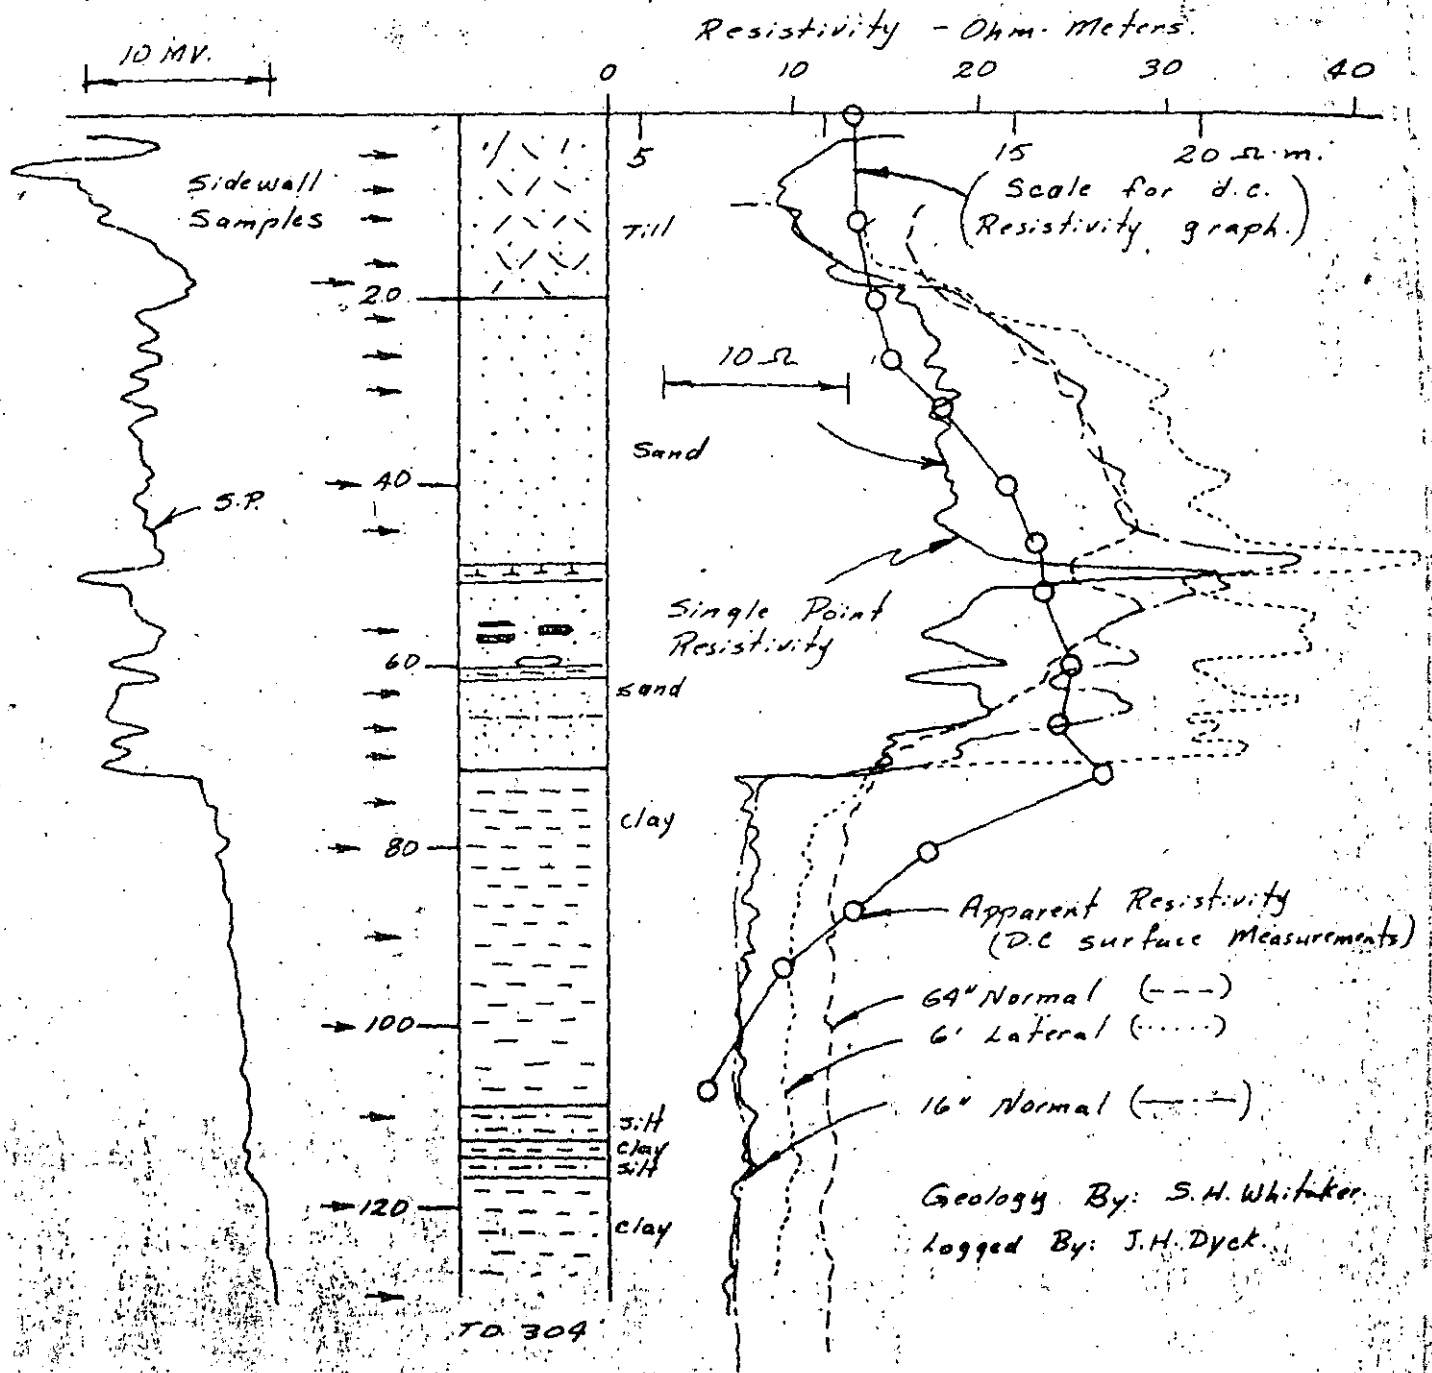 Resistivity - Ohm. Meters.
10 MV.
0 10 20 30 40
5 15 20 Ω.m.
Sidewall
Samples
(Scale for d.c.
Resistivity graph.)
Till
20
10 Ω
Sand
40
S.P.
Single Point
Resistivity
60
sand
clay
80
Apparent Resistivity
(D.C surface Measurements)
64" Normal (---)
100
6' Lateral (.....)
16" Normal (—·—)
silt
clay
silt
120
clay
Geology By: S.H. Whitaker.
Logged By: J.H. Dyck.
TD. 304